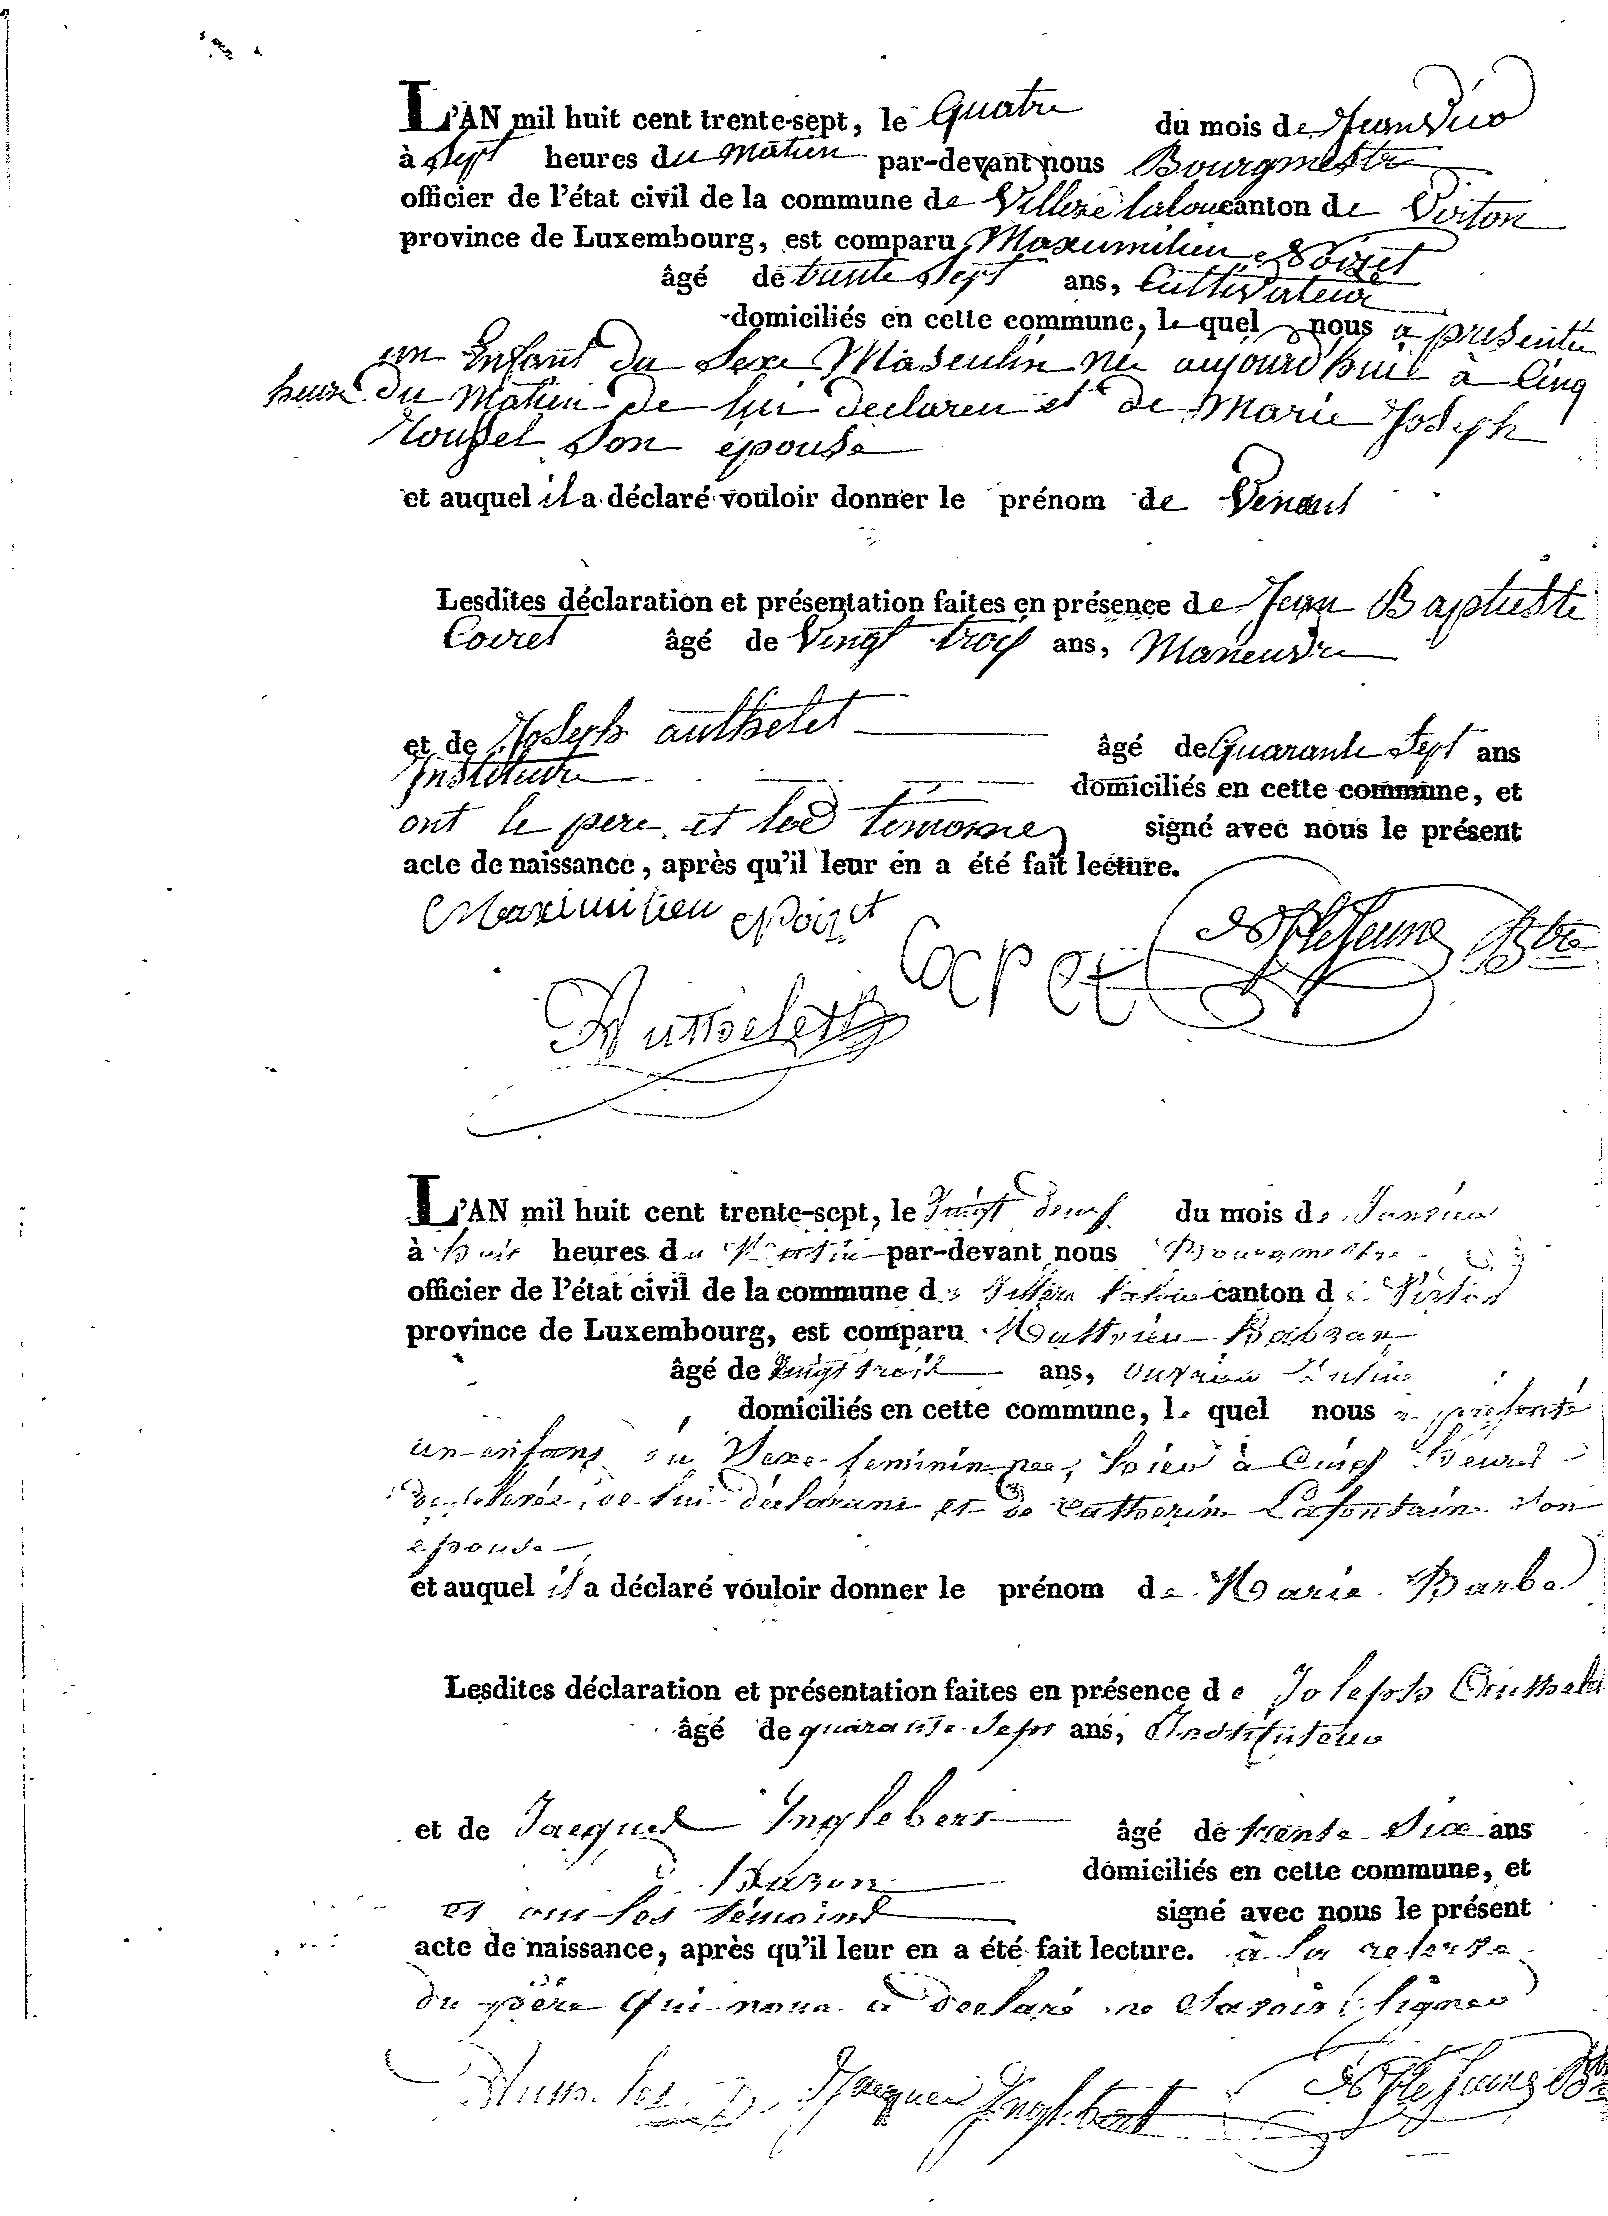 L'AN mil huit cent trente-sept, le Quatre du mois de Janvier
à Sept heures du matin par-devant nous Bourgmestre
officier de l'état civil de la commune de Villers laloue canton de Virton
province de Luxembourg, est comparu Maxumilien Noizet
âgé de trente Sept ans, Cultivateur
domiciliés en cette commune, le quel nous a presenté
un Enfant du Sexe Masculin né aujourd'huil à Cinq
heure du Matin de lui declaren et de Marie Joseph
son épouse
et auquel il a déclaré vouloir donner le prénom de
Lesdites déclaration et présentation faites en présence de Jean Baptiste
âgé de Vingt trois ans, Maneuvre
et de Joseph authelet âgé de Quarante Sept ans
Instituteur domiciliés en cette commune, et
ont le pere et les temoins signé avec nous le présent
acte de naissance, après qu'il leur en a été fait lecture.
Maximilien Noizet
Lejeune Btre
Authelet
L'AN mil huit cent trente-sept, le Vingt deux du mois de Janvier
à huit heures du Matin par-devant nous Bourgmestre
officier de l'état civil de la commune de Villers laloue canton de Virton
province de Luxembourg, est comparu Matthieu
âgé de Vingt trois ans, ouvrier
domiciliés en cette commune, le quel nous a présenté
un enfant du Sexe feminin née hier à Cinq heures
de lui déclarant et de Catherine Lafontaine Son
epouse
et auquel il a déclaré vouloir donner le prénom de Marie Barbe
Lesdites déclaration et présentation faites en présence de Joseph Authelet
âgé de quarante Sept ans, Instituteur
et de Jacques Inglebert âgé de trente Six ans
domiciliés en cette commune, et
et ont les témoins signé avec nous le présent
acte de naissance, après qu'il leur en a été fait lecture. à la reserve
du père Qui nous a declaré ne Savoir Signer
Jacques Inglebert
Lejeune